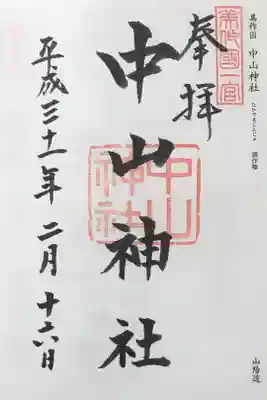 美作国 中山神社
なかやまじんじゃ
御作物
山陽道
美作國一宮
奉拝
中山神社
中山神社
平成三十一年 二月 十六日